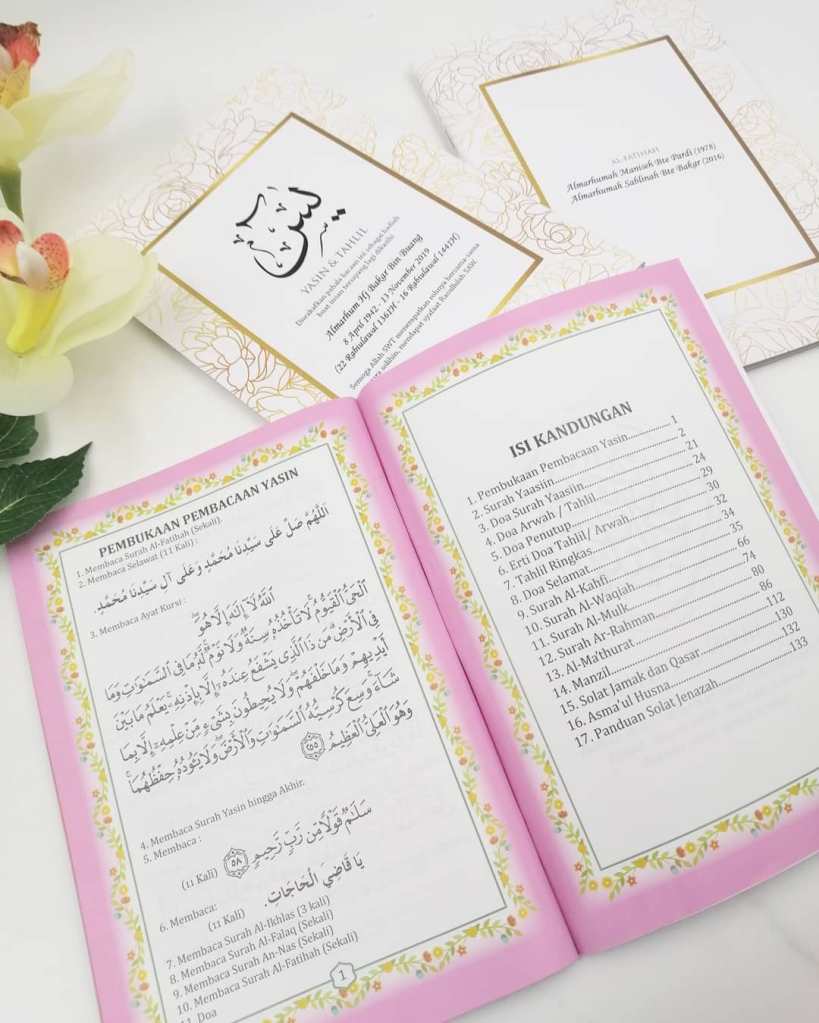 يسٓ
YASIN & TAHLIL
Disedekahkan pahala bacaan ini sebagai hadiah
buat insan tersayang lagi dikasihi
Almarhum Hj Bakar Bin Buang
8 April 1942 - 13 November 2019
(22 Rabiulawal 1361H - 16 Rabiulawal 1441H)
Semoga Allah SWT menempatkan rohnya bersama-sama
solihin, mendapat syafaat Rasulullah SAW.
AL-FATIHAH
Almarhumah Maniseh Bte Pardi (1978)
Almarhumah Sablinah Bte Bakar (2016)
PEMBUKAAN PEMBACAAN YASIN
1. Membaca Surah Al-Fatihah (Sekali).
2. Membaca Selawat (11 Kali) :
اَللّٰهُمَّ صَلِّ عَلَى سَيِّدِنَا مُحَمَّدٍ وَعَلَى آلِ سَيِّدِنَا مُحَمَّدٍ.
3. Membaca Ayat Kursi :
ٱللَّهُ لَآ إِلَٰهَ إِلَّا هُوَ
ٱلْحَىُّ ٱلْقَيُّومُ ۚ لَا تَأْخُذُهُۥ سِنَةٌ وَلَا نَوْمٌ ۚ لَّهُۥ مَا فِى ٱلسَّمَٰوَٰتِ وَمَا
فِى ٱلْأَرْضِ ۗ مَن ذَا ٱلَّذِى يَشْفَعُ عِندَهُۥٓ إِلَّا بِإِذْنِهِۦ ۚ يَعْلَمُ مَا بَيْنَ
أَيْدِيهِمْ وَمَا خَلْفَهُمْ ۖ وَلَا يُحِيطُونَ بِشَىْءٍ مِّنْ عِلْمِهِۦٓ إِلَّا بِمَا
شَآءَ ۚ وَسِعَ كُرْسِيُّهُ ٱلسَّمَٰوَٰتِ وَٱلْأَرْضَ ۖ وَلَا يَـُٔودُهُۥ حِفْظُهُمَا ۚ
وَهُوَ ٱلْعَلِىُّ ٱلْعَظِيمُ ٢٥٥
4. Membaca Surah Yasin hingga Akhir.
5. Membaca :
سَلَٰمٌ قَوْلًا مِّن رَّبٍّ رَّحِيمٍ ٥٨ (11 Kali)
6. Membaca:
يَا قَاضِيَ الْحَاجَاتِ. (11 Kali)
7. Membaca Surah Al-Ikhlas (3 kali)
8. Membaca Surah Al-Falaq (Sekali)
9. Membaca Surah An-Nas (Sekali)
10. Membaca Surah Al-Fatihah (Sekali)
11. Doa
1
ISI KANDUNGAN
1. Pembukaan Pembacaan Yasin.............. 1
2. Surah Yaasiin.............. 2
3. Doa Surah Yaasiin.............. 21
4. Doa Arwah / Tahlil.............. 24
5. Doa Penutup.............. 29
6. Erti Doa Tahlil/ Arwah.............. 30
7. Tahlil Ringkas.............. 32
8. Doa Selamat.............. 34
9. Surah Al-Kahfi.............. 35
10. Surah Al-Waqiah.............. 66
11. Surah Al-Mulk.............. 74
12. Surah Ar-Rahman.............. 80
13. Al-Ma'thurat.............. 86
14. Manzil.............. 112
15. Solat Jamak dan Qasar.............. 130
16. Asma'ul Husna.............. 132
17. Panduan Solat Jenazah.............. 133